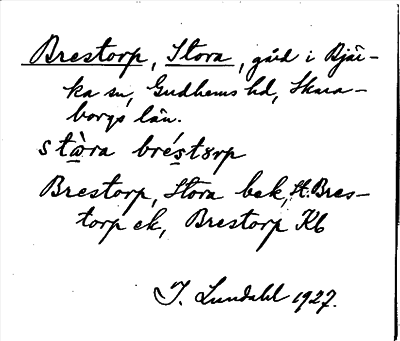 Brestorp, Stora, gård i Bjär-
ka sn, Gudhems hd, Skara-
borgs län.
stòra bréstorp
Brestorp, Stora bek, St. Bres-
torp ek, Brestorp Kb
I. Lundahl 1927.